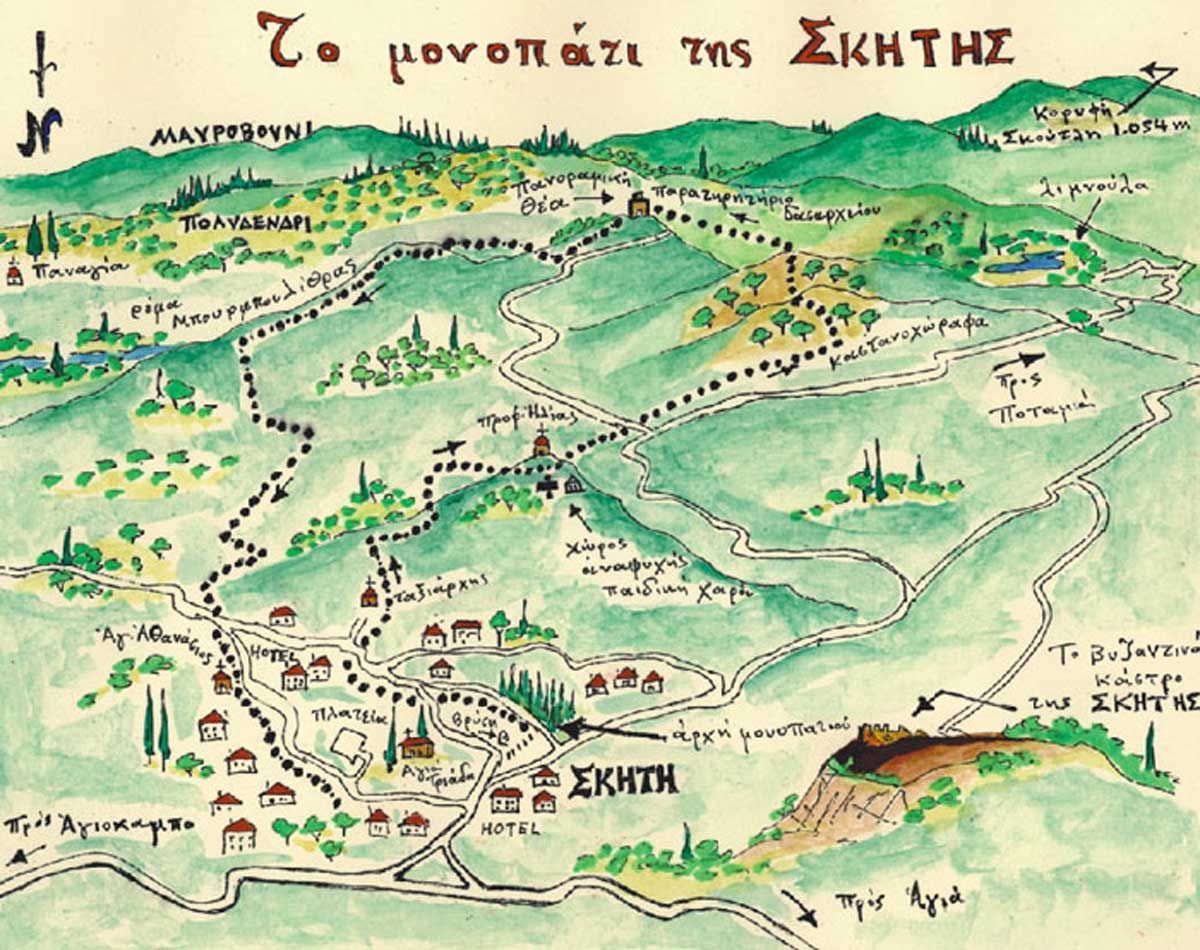 Το μονοπάτι της ΣΚΗΤΗΣ
N
ΜΑΥΡΟΒΟΥΝΙ
Κορυφή
Σκούτλη 1.054 m
Πανοραμική
Θέα
Παρατηρητήριο
δασαρχείου
λιμνούλα
ΠΟΛΥΔΕΝΔΡΙ
Παναγία
ρέμα
Μπουρμπουλίθρας
Καστανοχώραφα
προς
Ποταμιά
Προφ. Ηλίας
χώρος
αναψυχής
παιδική χαρά
ταξιάρχης
Αγ. Αθανάσιος
HOTEL
Πλατεία
Βρύση
Αγία
Τριάδα
αρχή μονοπατιού
Το Βυζαντινό
κάστρο
της ΣΚΗΤΗΣ
ΣΚΗΤΗ
HOTEL
πρός Αγιόκαμπο
πρός Αγιά